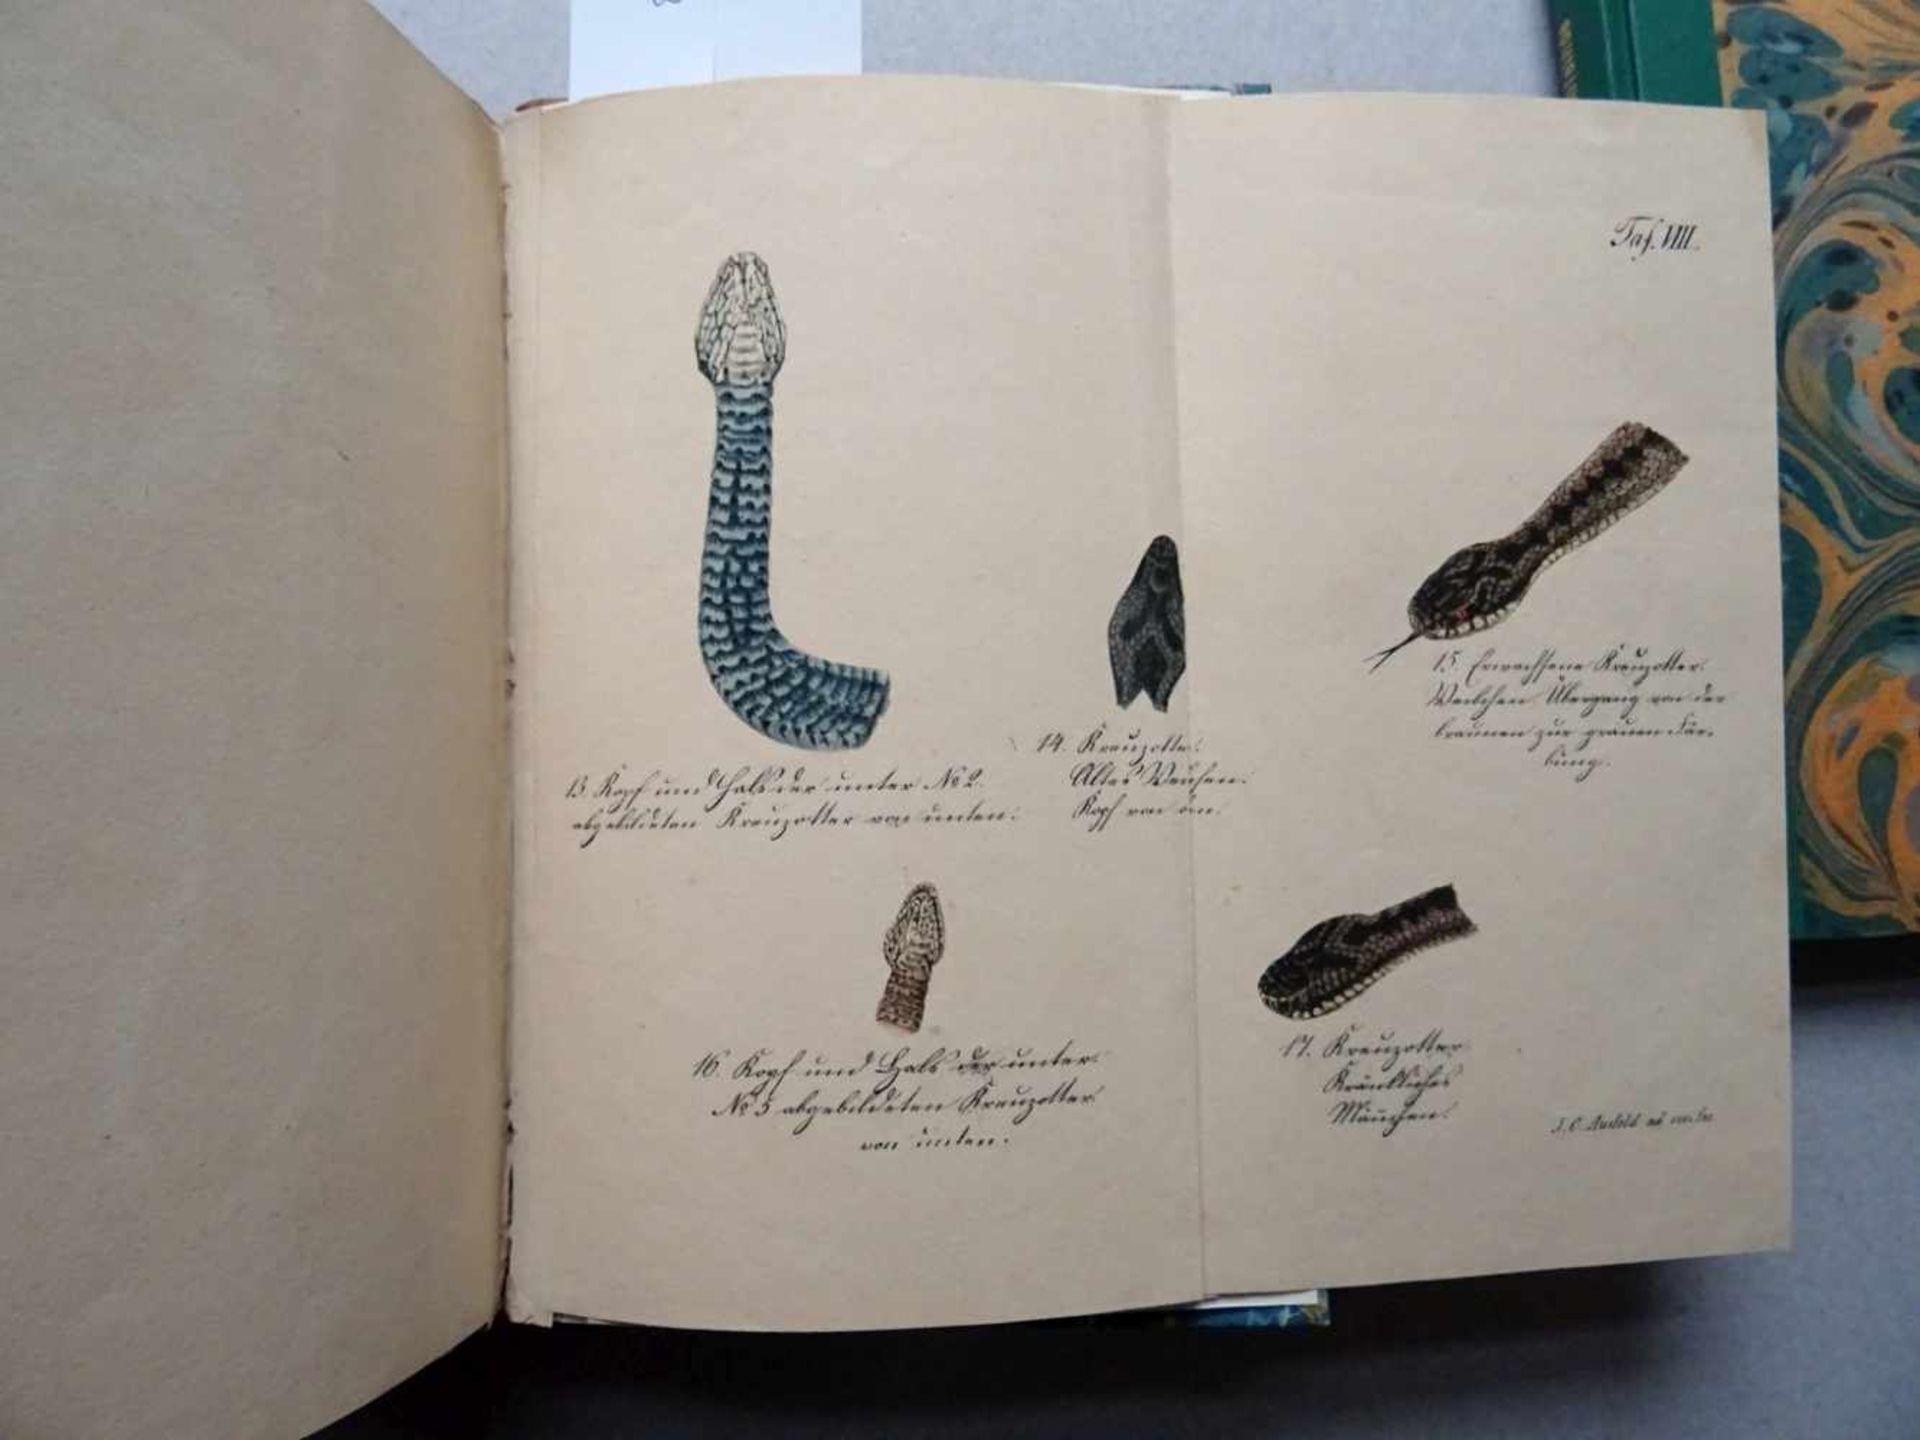 Taf. VIII.
13. Kopf und Hals der unter No 2.
abgebildeten Kreuzotter von unten.
14. Kreuzotter.
Altes
Kopf von
15. Erwachsene Kreuzotter.
Weibchen Übergang von der
braunen zur grauen Fär-
bung.
16. Kopf und Hals der unter
No 5 abgebildeten Kreuzotter
von unten.
17. Kreuzotter
Kränkliches
Männchen.